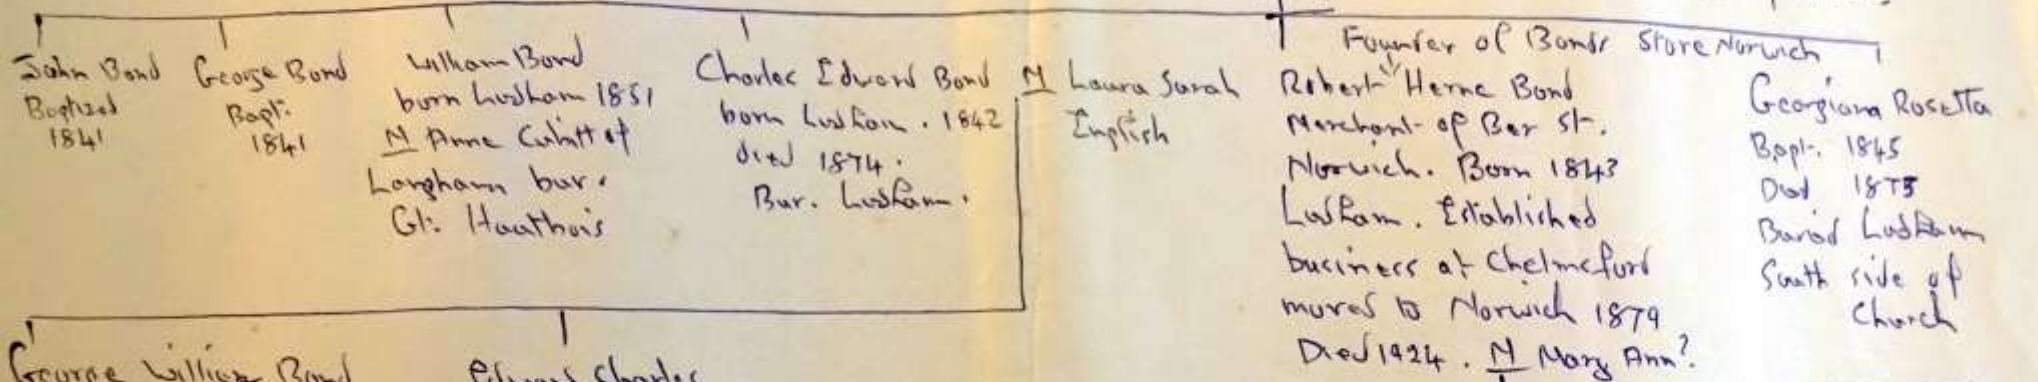 John Bond
Baptized
1841
George Bond
Bapt.
1841
William Bond
born Ludham 1851
M Anne Cubitt of
Langham bur.
Gt. Hautbois
Charles Edward Bond
born Ludham. 1842
died 1874.
Bur. Ludham.
M Laura Sarah
English
Founder of Bonds Store Norwich
Robert Herne Bond
Merchant of Ber St.
Norwich. Born 1843
Ludham. Established
business at Chelmsford
moves to Norwich 1879
Died 1924. M Mary Ann?
Georgiana Rosetta
Bapt. 1845
Died 1875
Buried Ludham
South side of
Church
George William Bond
Edward Charles